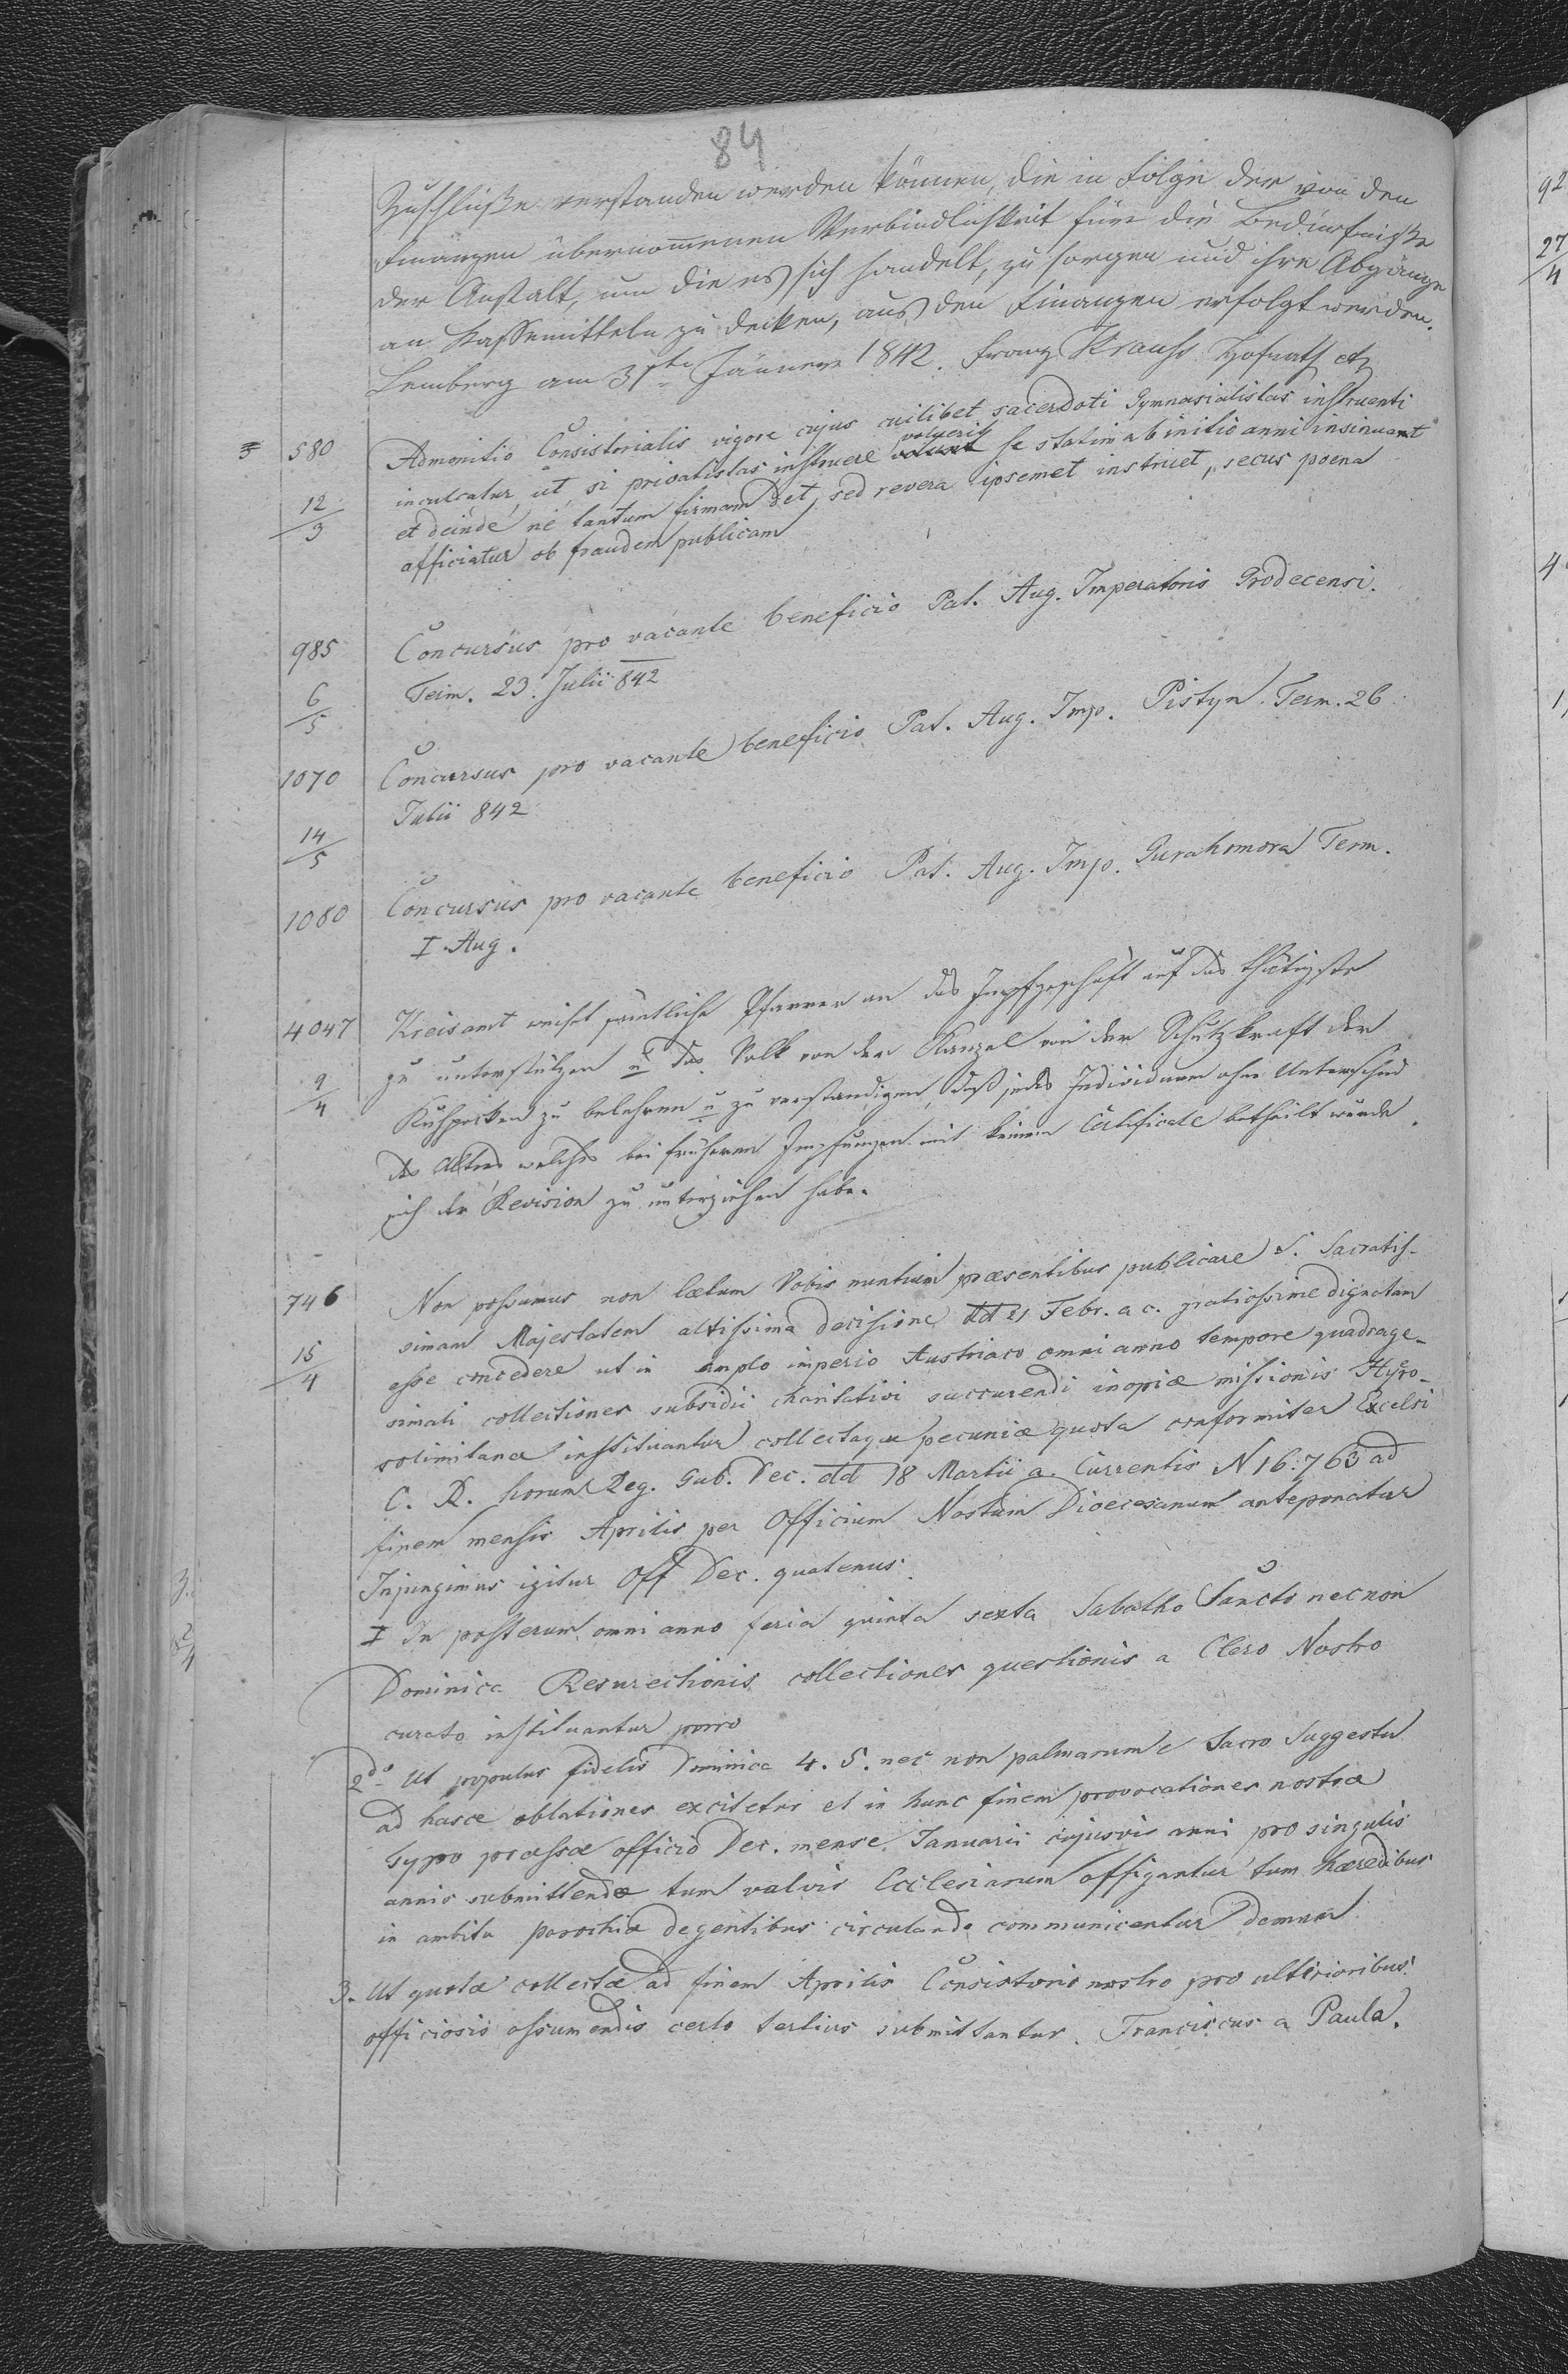 84
Zuschüße verstanden werden können, die in Folge der von den
Finanzen übernommenen Verbindlichkeit für die Bedürfniße
der Anstalt, um die es sich handelt, zu sorgen und ihre Abgänge
an Kassemitteln zu decken, aus den Finanzen erfolgt werden.
Lemberg am 3ten Jänner 1842. Franz Krauss Hofrath
580 Admonitio Consistorialis vigore cujus cuilibet sacerdoti Gymnasialistas instruenti
inculcatur, ut, si privatistas instruere voluerit se statim ab initio anni insinuant
12/3 et deinde ne tantum firmam det, sed revera ipsemet instruet, secus poena
afficiatur ob fraudem publicam
985 Concursus pro vacante beneficio Pat. Aug. Imperatoris Grodecensi.
6/5 Term. 23. Julii 842
1070 Concursus pro vacante beneficio Pat. Aug. Imp. Pistyn Term. 26
14/5 Julii 842
1080 Concursus pro vacante beneficio Pat. Aug. Imp. Gurahomora Term.
I Aug.
4047 Kreisamt weiset sämtliche Pfarrer an das Impfgeschäft auf das thätigste
9/4 zu unterstützen u das Volk von der Kanzel von der Schutzkraft der
Kuhpocken zu belehren u zu verständigen, daß jedes Individuum ohne Unterschied
des Alters welches bei früheren Impfungen mit keinem Certificate betheilt wurde
sich der Revision zu unterziehen habe.
746 Non possumus non laetum Vobis nuntium praesentibus publicare S. Sacratis-
simam Majestatem altissima decisione dd 21 Febr. a c. gratiossime dignatam
15/4 esse concedere ut in amplo imperio Austriaco omni anno tempore quadrage-
simali collectiones subsidii charitativi succurendi inopiæ missionis Hyro-
solimitanæ instituantur collectaque pecuniæ quota conformiter Excelsi
C. R. horum Reg. Gub. Dec. dd 18 Martii a. Currentis N 16.763 ad
finem mensis Aprilis per Officium Nostrum Dioecesanum anteponatur
Injungimus igitur Off Dec. quatenus
I In posterum omni anno feria quinta sexta Sabatho Sancto necnon
Dominica Resurectionis collectiones questionis a Clero Nostro
curato instituantur porro
2do Ut populus fidelis Dominica 4. 5. nec non palmarum e Sacro Suggestu
ad hasce oblationes excitetur et in hunc finem provocationes nostræ
typo præssæ officio Dec. mense Januarii cujusvis anni pro singulis
annis submittendæ tum valvis Ecclesiarum affigantur tum hæredibus
in ambitu parochiæ degentibus circulando communicentur demum
3. Ut quotæ collectæ ad finem Aprilis Consistorio nostro pro ulterioribus
officiosis assumendis certo tertius submittantur. Franciscus a Paula.